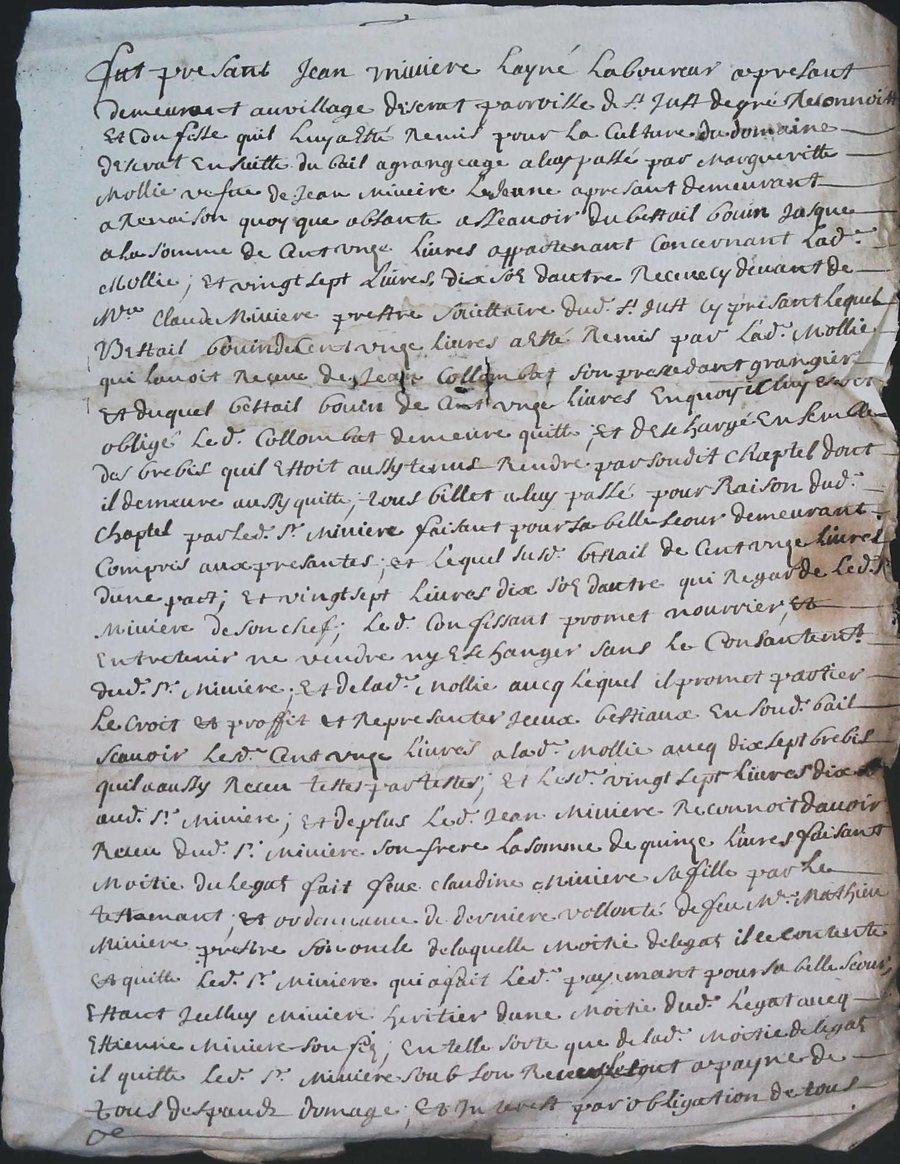 fut presant Jean miviere Layné Laboureur apresant
demeurant au village descrat parroisse de St Just de gré Reconnoit
Et Confesse quil Luy a esté Remis pour La Culture du domaine
descrat En suitte du bail a grangeage a luy passé par Margueritte
Mollie vefue de Jean Miviere Le Jeune apresant demeurant
a Renaison quoy que absante assavoir du bestail bouin Jusque
a la somme de Cent unge Livres appartenant Concernant Lad.e
Mollie; Et vingt sept Livres dix sos dautre Receu cy devant de
Mre Claude Miviere prestre Socittaire dud. St Just cy presant Lequel
Bestail bouin de Cent unge livres a esté Remis par Lad. Mollie
qui Lavoit Receue de Jean Collombat son precedant granger
Et duquel bestail bouin de Cent unge Livres En quoy il luy estoit
obligé Led. Collombat demeure quitte, et deschargé Ensemble
des brebis quil Estoit aussy tenus Rendre par son dit Chaptel dont
il demeure aussy quitte, tous billet a luy passé pour Raison dud.
Chaptel par Led. Sr. Miviere faisant pour sa belle seour demeurant
Compris aux presantes; et Lequel susd. bestail de Cent unge Livres
dune part; Et vingt sept Livres dix sos dautre qui Regarde Led. Sr
Miviere de son chef; Led. Confissant promet nourrier, et
Entretenir ne vendre ny Eschanger sans Le Consantemt.
dud. Sr. Miviere; Et de lad. Mollie aucq Lequel il promet partier
Le Croit et proffit et Representer Iceux bestiaux En sond. bail
Scavoir Lesd. Cent unge Livres a lad. Mollie aucq dix sept brebis
quil a aussy Receu testes par testes; Et Lesd. vingt sept Livres dix s
aud. Sr. Miviere; Et de plus Led. Jean Miviere Reconnoit davoir
Receu dud. Sr. Miviere son frere La somme de quinze Livres faisant
Moitié du legat fait feüe Claudine Miviere sa fille par Le
testamant, et ordonnance de derniere vollonté de feu Mre. Mathieu
Miviere prestre son oncle de laquelle Moitié de legat il se Contente
Et quitte Led. Sr. Miviere qui a fait Led. payemant pour sa belle seour,
Estant Icelluy Miviere heritier dune Moitié dud. Legat aucq
Estienne Miviere son fils; En telle sorte que de lad. Moitié de legat
il quitte Led. Sr. Miviere soub son Receu Le tout a payne de
tous despands domage, et Interest par obligation de tous